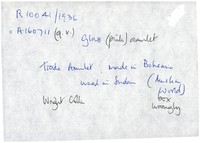 R10041/1936
A160711 (q.v.)
Glass (pink) amulet
Trade Amulet made in Bohemia
used in Sudan (Muslim
World)
Wright Coll.
box
wrongly